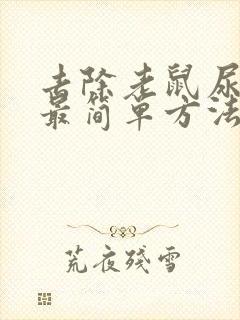 去除老鼠尿
最简单方法
荒夜残雪